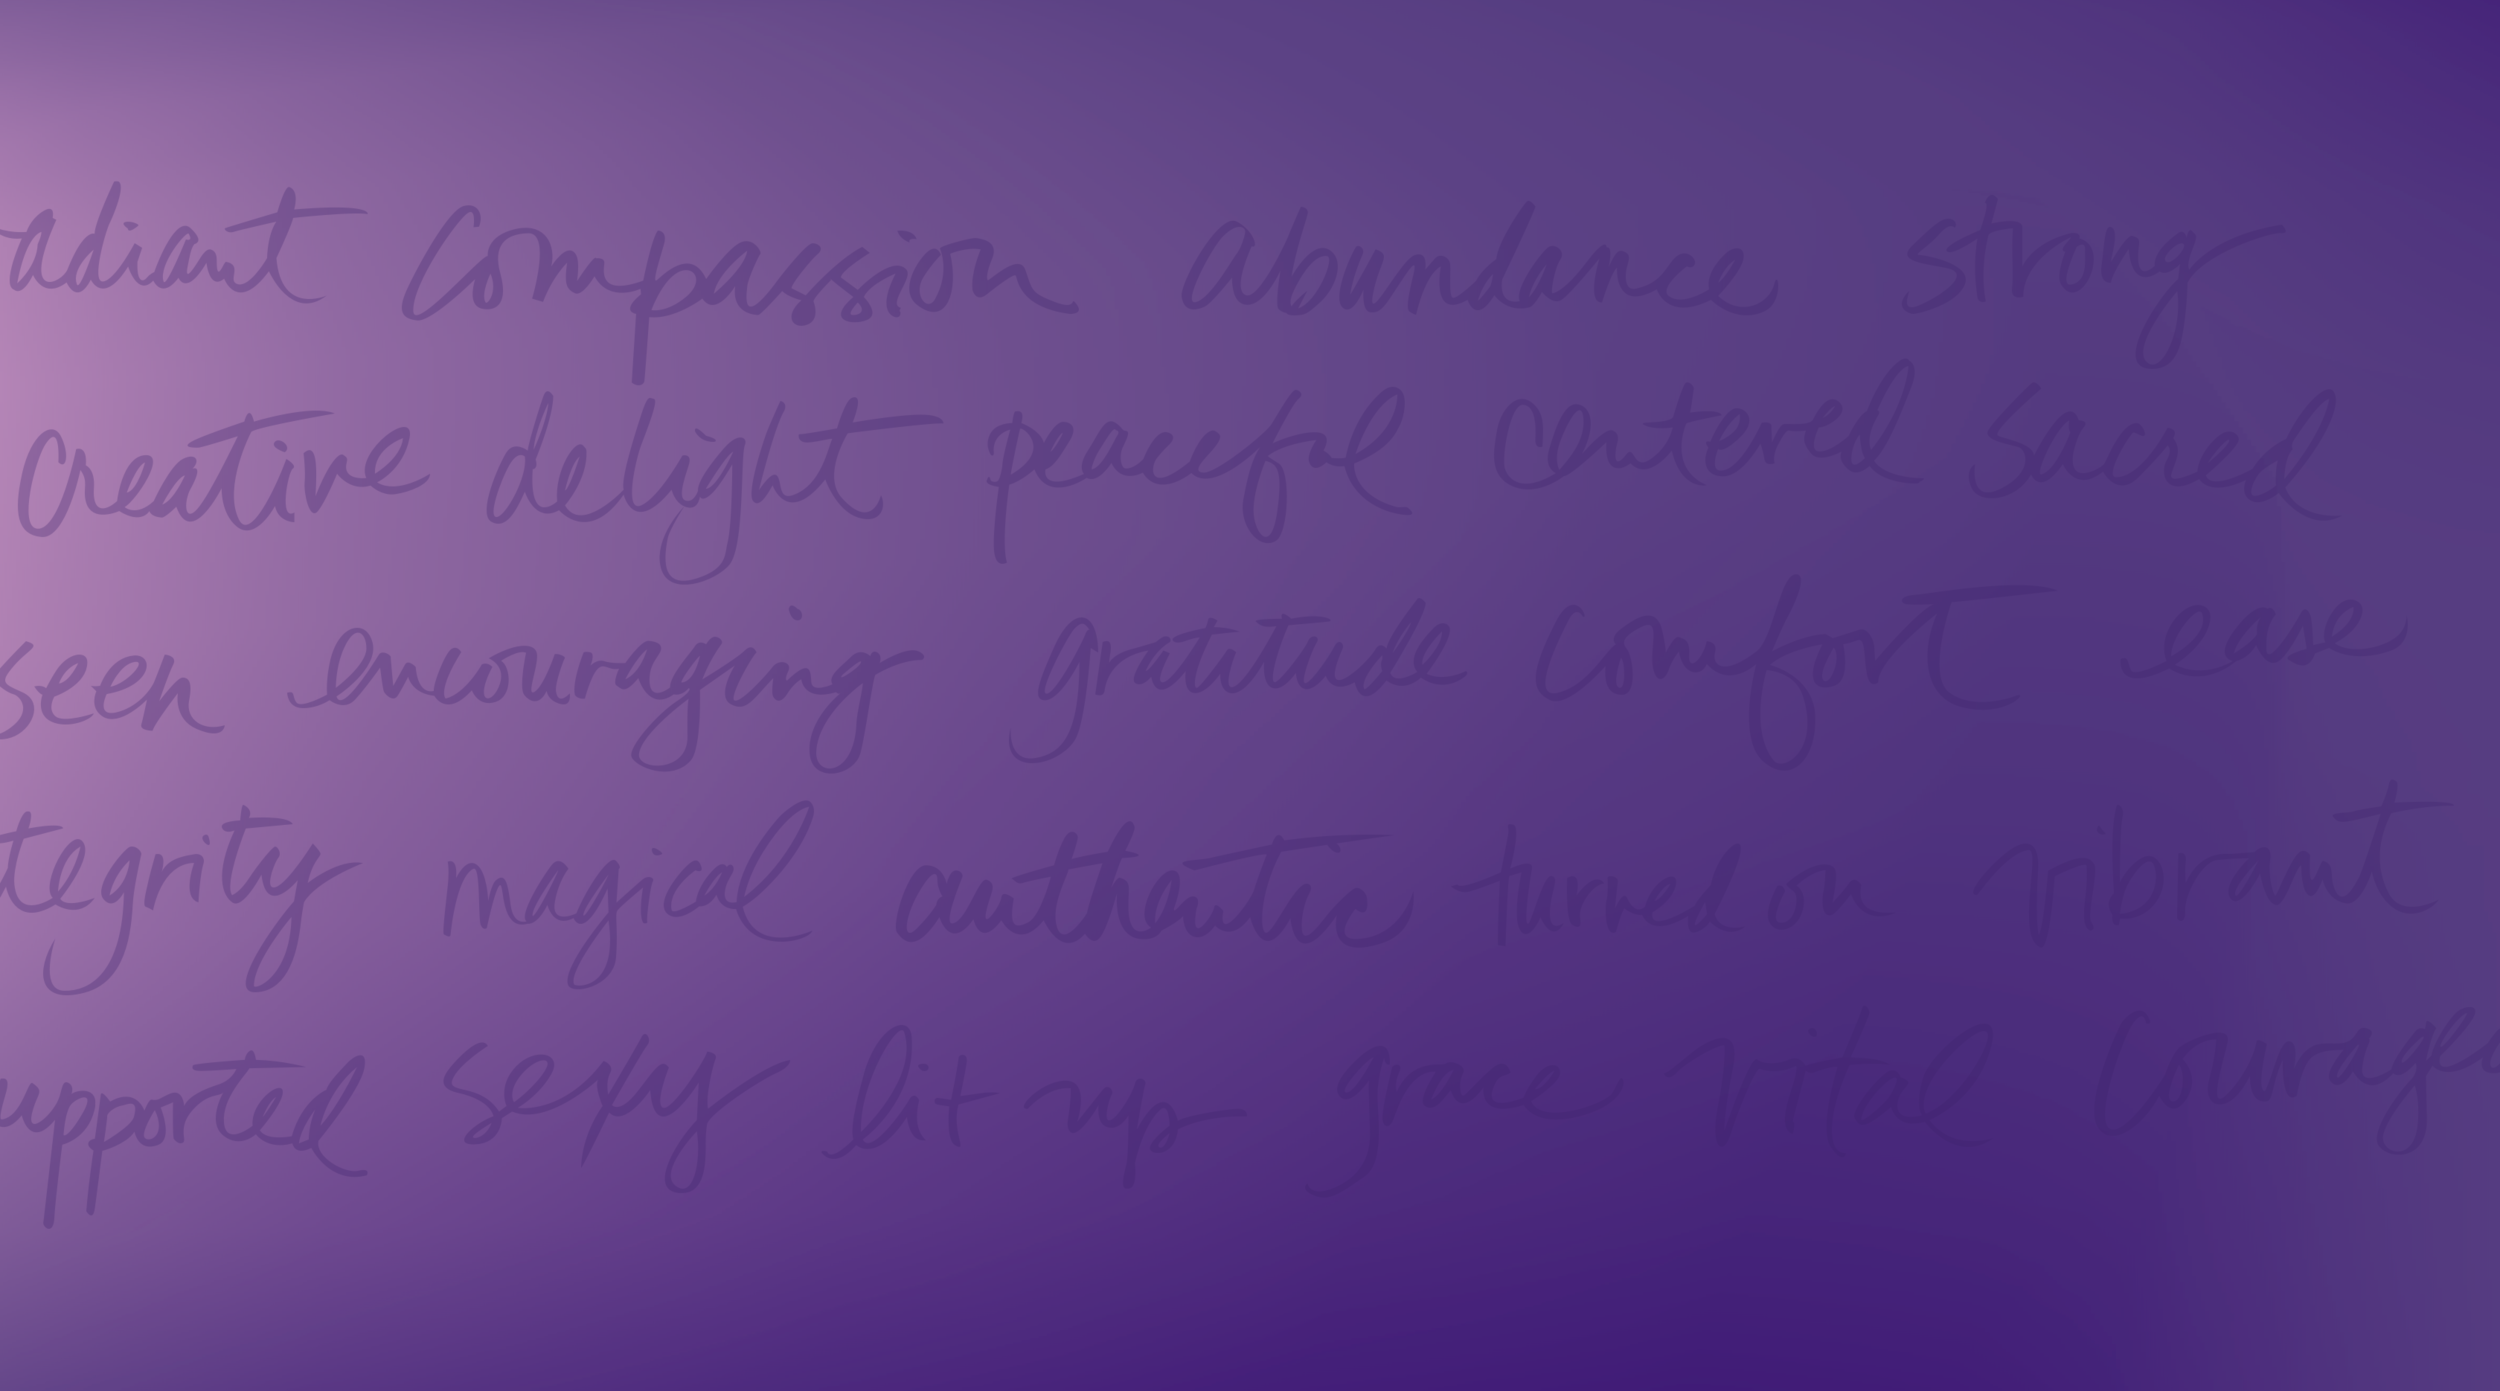 adiant Compassion abundance strong
Creative delight peaceful Centered Sacred
Seen encouraging gratitude comfort ease
tegrity magical authentic turned on vibrant
upported sexy lit up grace vital Courage